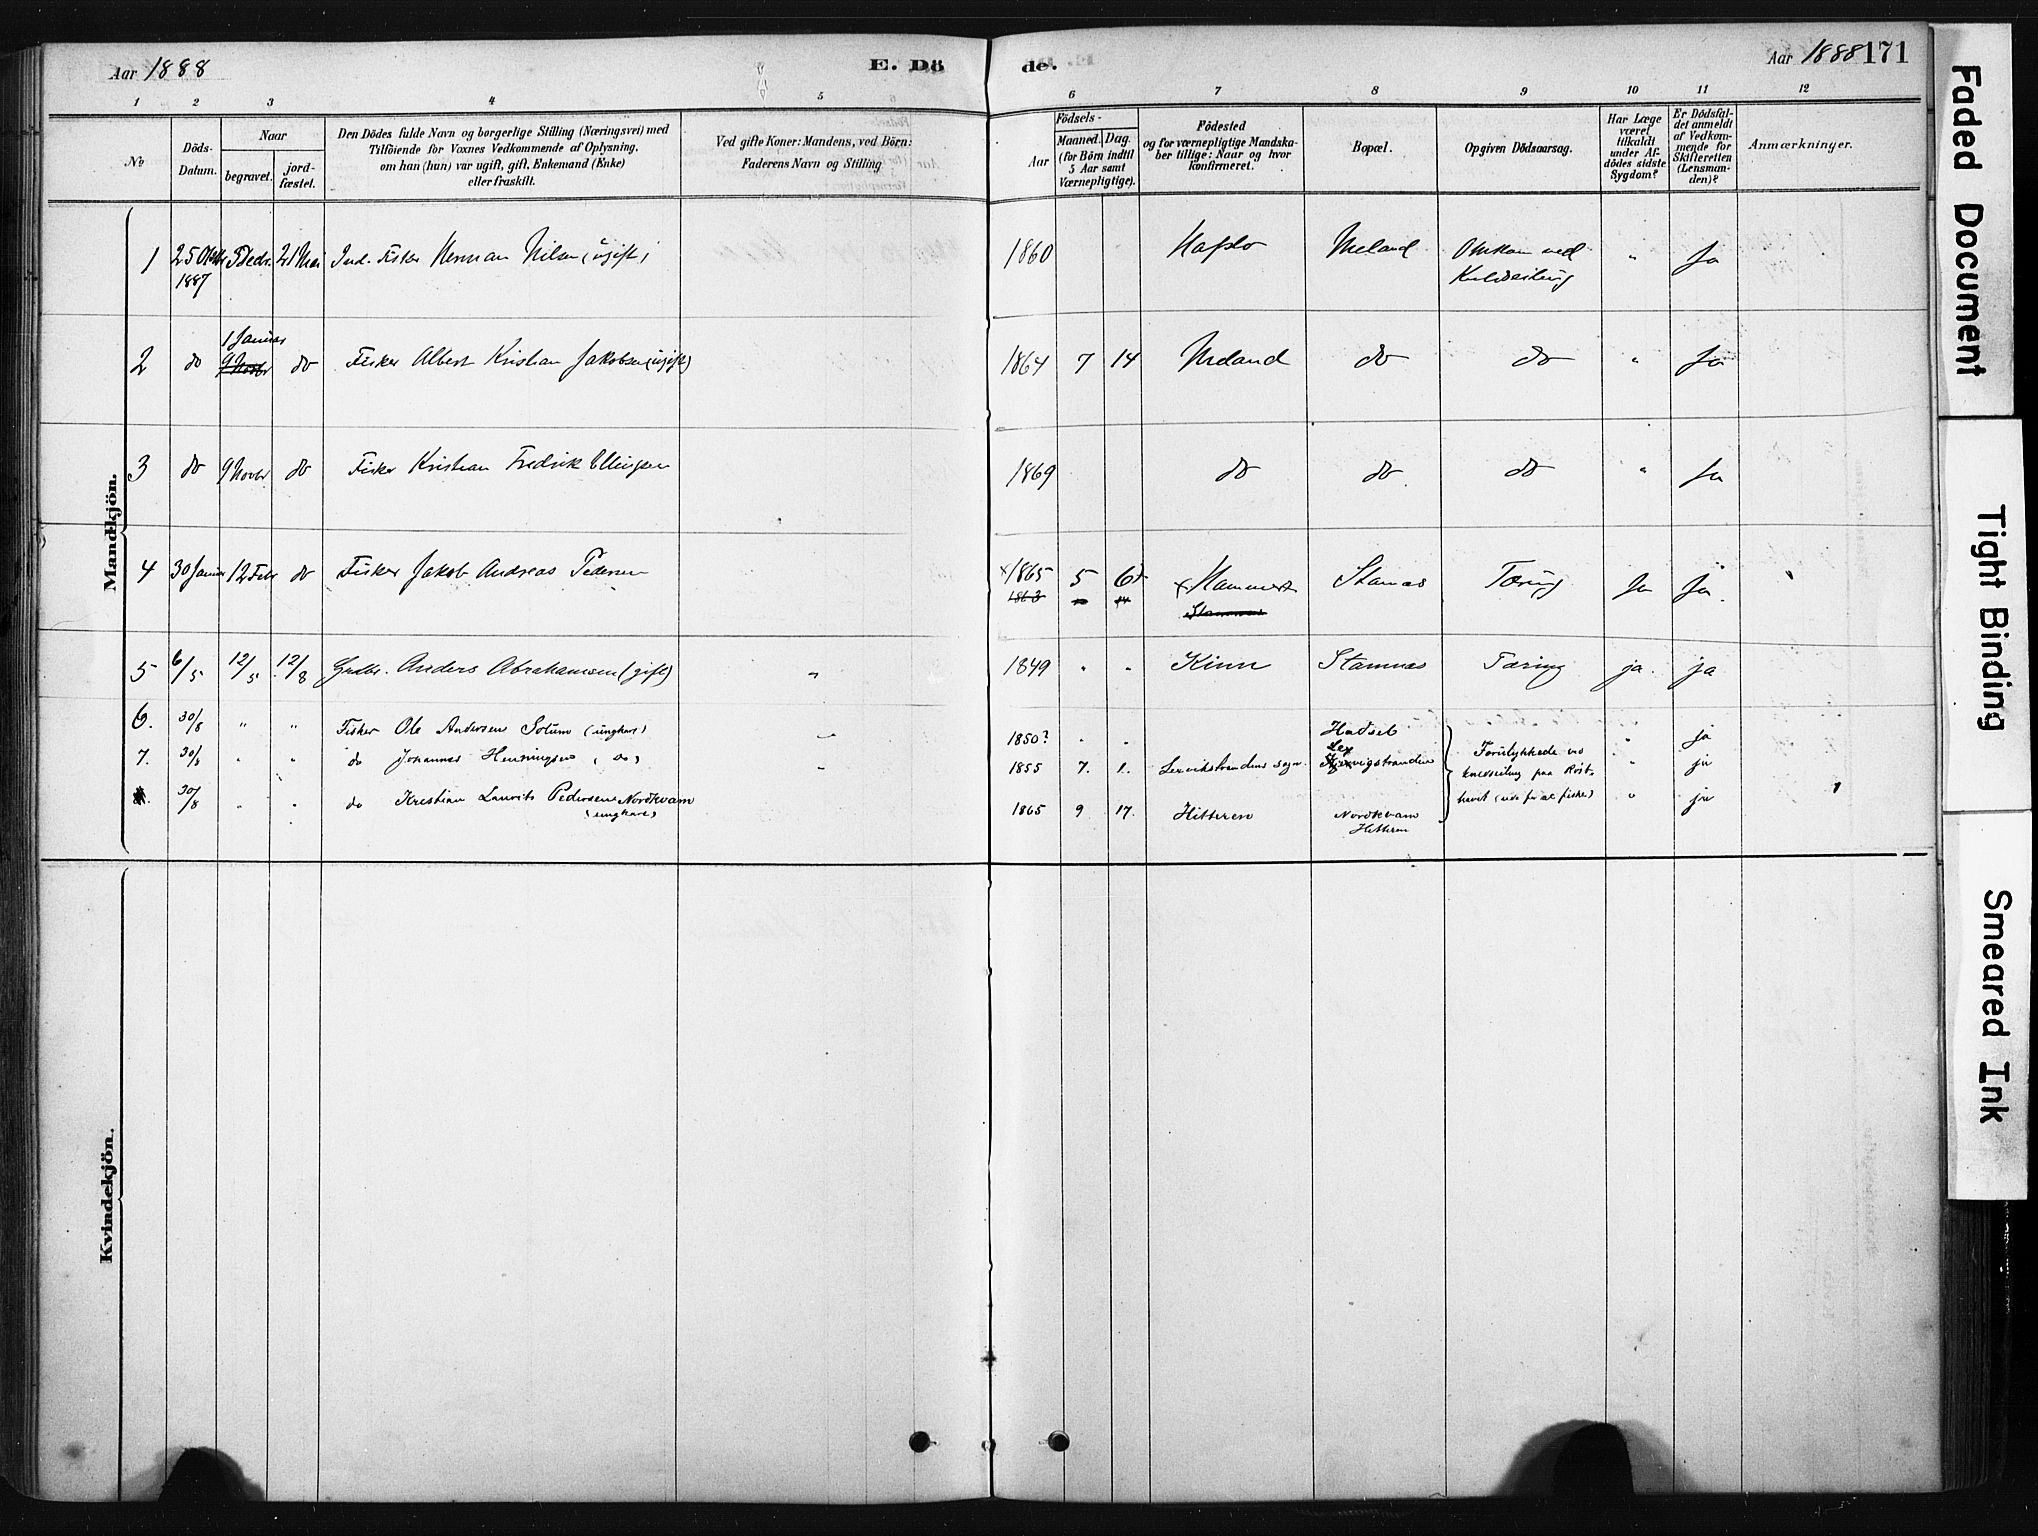 Aar 1888
E. Dö
de.
Aar 1888 171
1 2 3 4 5 6 7 8 9 10 11 12
No
Döds-
Datum.
Naar
begravet.
jord-
fæstet.
Den Dödes fulde Navn og borgerlige Stilling (Næringsvei) med
Tilföiende for Voxnes Vedkommende af Oplysning,
om han (hun) var ugift, gift, Enkemand (Enke)
eller fraskilt.
Ved gifte Koner: Mandens, ved Börn:
Faderens Navn og Stilling
Födsels-
Aar
Maaned. Dag.
(for Börn indtil
5 Aar samt
Værnepligtige).
Födested
og for værnepligtige Mandska-
ber tillige: Naar og hvor
konfirmeret.
Bopæl.
Opgiven Dödsaarsag.
Har Læge
været
tilkaldt
under Af-
dödes sidste
Sygdom?
Er Dödsfal-
det anmeldt
af Vedkom-
mende for
Skifteretten
(Lensman-
den)?
Anmærkninger.
Mandkjön.
1 25 Oktbr 5 Decbr. 21 Mai Ind. Fisker Herman Nilsen (ugift) 1860 Hafslo Meland Omkom ved " Ja
1887 Kuldseiling
1 Januar
2 do 9 Novbr do Fisker Albert Kristian Jakobsen (ugift) 1864 7 14 Meland do do " Ja
3 do 9 Novbr do Fisker Kristian Fredrik Ellingsen 1869 do do do " Ja
4 30 Januar 12 Febr do Fisker Jakob Andreas Pedersen 1865 5 6 Hammerø Stamnæs Tæring Ja Ja.
1863 Stamnæs
5 6/5 12/5 12/8 Grdbr. Anders Abrahamsen (gift) " 1849 " " Kinn Stamnæs Tæring ja. ja
6. 30/8 " " Fisker Ole Andersen Solum (ungkarl) " 1850? " " Hadsel " ja
7. 30/8 " " do Johannes Henningsen (do) " 1855 7. 1. Lexvikstrandens sogn. Lexvigstranden Forulykkede ved " ja
kuldseiling paa Röst-
30/8 " " do Kristian Laurits Pedersen Nordkvam 1865 9 17. Hitteren Nordkvam havet (ude for at fiske) " ja
(ungkarl) Hitteren
Kvindekjön.
Faded Document
Tight Binding
Smeared Ink